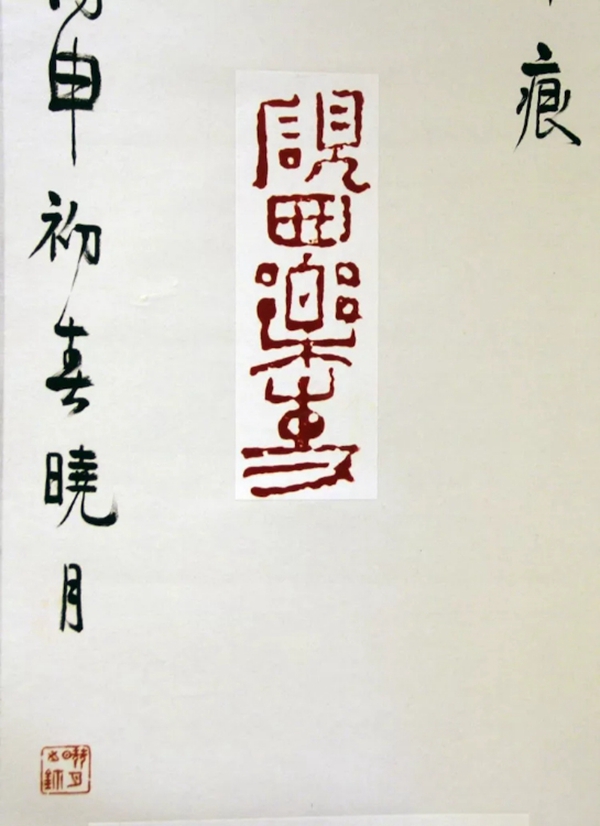 痕
硯田樂事
申初春曉月